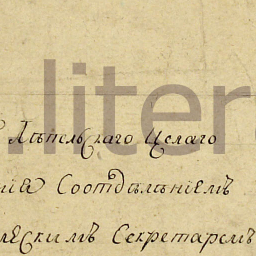 .liter
Лѣпельскаго Цѣлаго
нія Соотдѣленіемъ
ческимъ Секретаремъ